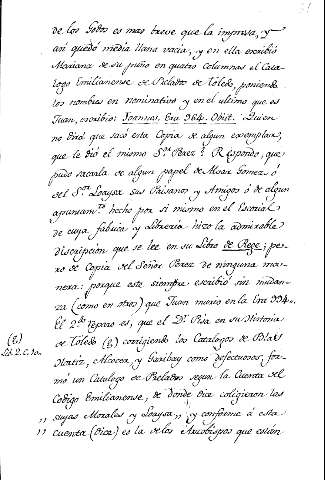 de los Godos es mas breve que la impresa, y
asi quedó media llana vacia, y en ella escribió
Mariana de su puño en quatro columnas el Cata-
logo Emilianense de Prelados de Toledo, poniendo
los nombres en nominativo y en el ultimo que es
Juan, escribió: Joannes, Era 964. Obiit. Quien
no dirá que sacó esta Copia de algun exemplar,
que le dió el mismo Sr. Perez? Respondo, que
pudo sacarla de algun papel de Alvar Gomez, ó
del Sr. Loaysa sus Paisanos y Amigos ó de algun
apuntamto. hecho por si mismo en el Escorial
de cuya fabrica y Libreria hizo la admirable
discripcion que se lee en su Libro de Rege; pe-
ro de Copia del Señor Perez de ninguna ma-
nera: porque este siempre escribió sin mudan-
za (como en otros) que Juan murio en la Era 994.
El 2do. reparo es, que el Dr. Pisa en su Historia
de Toledo (e) corrigiendo los Catalogos de Blas
Hortiz, Alcocer, y Garibay como defectuosos, for-
mó un Catalogo de Prelados segun la Cuenta del
Codigo Emilianense, de donde dice coligieron las
,, suyas Morales y Loaysa,, y conforme á esta
,, cuenta (dice) es la de los Arzobispos que están
(e)
Lib. 2. C.